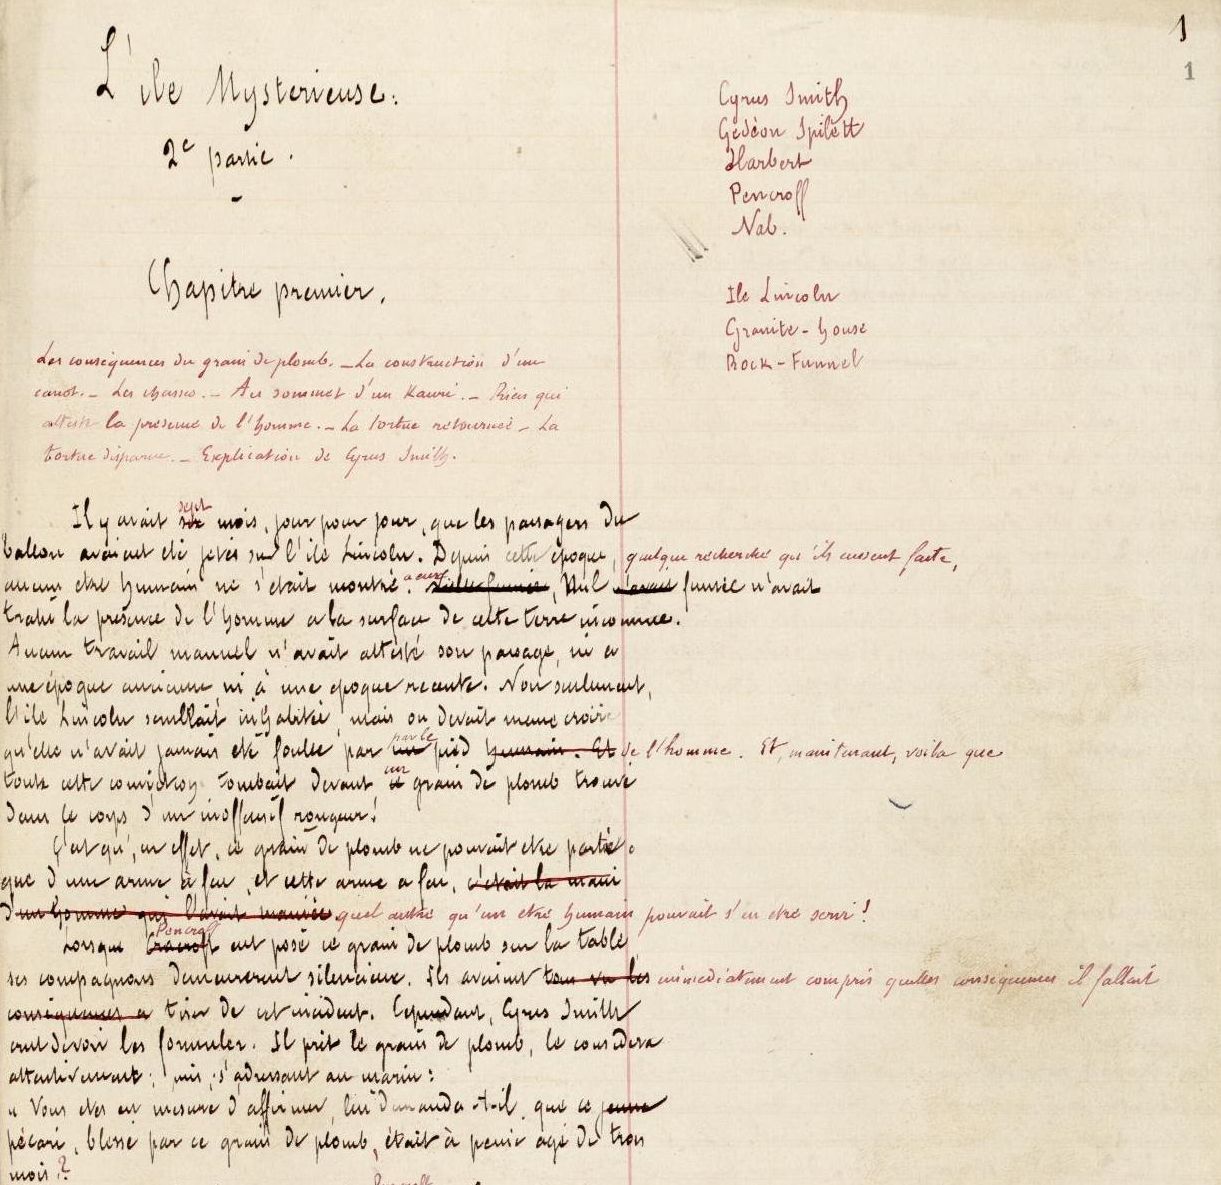 1
1
L'ile Mysterieuse.
2e partie.
Chapitre premier.
Cyrus Smith
Gedéon Spilett
Harbert
Pencroff
Nab.
Ile Lincoln
Granite-house
Rock-Funnel
Les conséquences du grain de plomb. _ La construction d'un
canot. _ Les chasses. _ Au sommet d'un Kauri. _ Rien qui
atteste la présence de l'homme. _ La tortue retournée _ La
tortue disparue. _ Explication de Cyrus Smith.
sept
Il y avait six mois, jour pour jour, que les passagers du
ballon avaient été jetés sur l'ile Lincoln. Depuis cette époque, quelque recherche qu'ils eussent faite,
aucun etre humain ne s'était montré à eux. Nulle fumée, Nul n'avait fumée n'avait
trahi la présence de l'homme a la surface de cette terre inconnue.
Aucun travail manuel n'avait attesté son passage, ni a
une époque ancienne, ni à une epoque recente. Non seulement,
l'ile Lincoln semblait inhabitée, mais on devait meme croire
par le
qu'elle n'avait jamais eté foulée par un pied humain. Et de l'homme. Et, maintenant, voila que
un
toute cette conviction tombait devant ce grain de plomb trouvé
dans le corps d'un inoffensif rongeur!
C'est qu', en effet, ce grain de plomb ne pouvait etre partie
que d'une arme à feu, et cette arme a feu, c'était la main
d'un homme qui l'avait maniée quel autre qu'un etre humain pouvait s'en etre servi!
Pencroff
Lorsque eut posé ce grain de plomb sur la table,
ses compagnons demeurerent silencieux. Ils avaient tous vu les immediatement compris quelles conséquences il fallait
conséquences a tirer de cet incident. Cependant, Cyrus Smith
crut devoir les formuler. Il prit le grain de plomb, le considera
attentivement; puis, s'adressant au marin:
« Vous etes en mesure d'affirmer, lui demanda-t-il, que ce jeune
pécari, blessé par ce grain de plomb, était à peine agé de trois
mois?
Pencroff